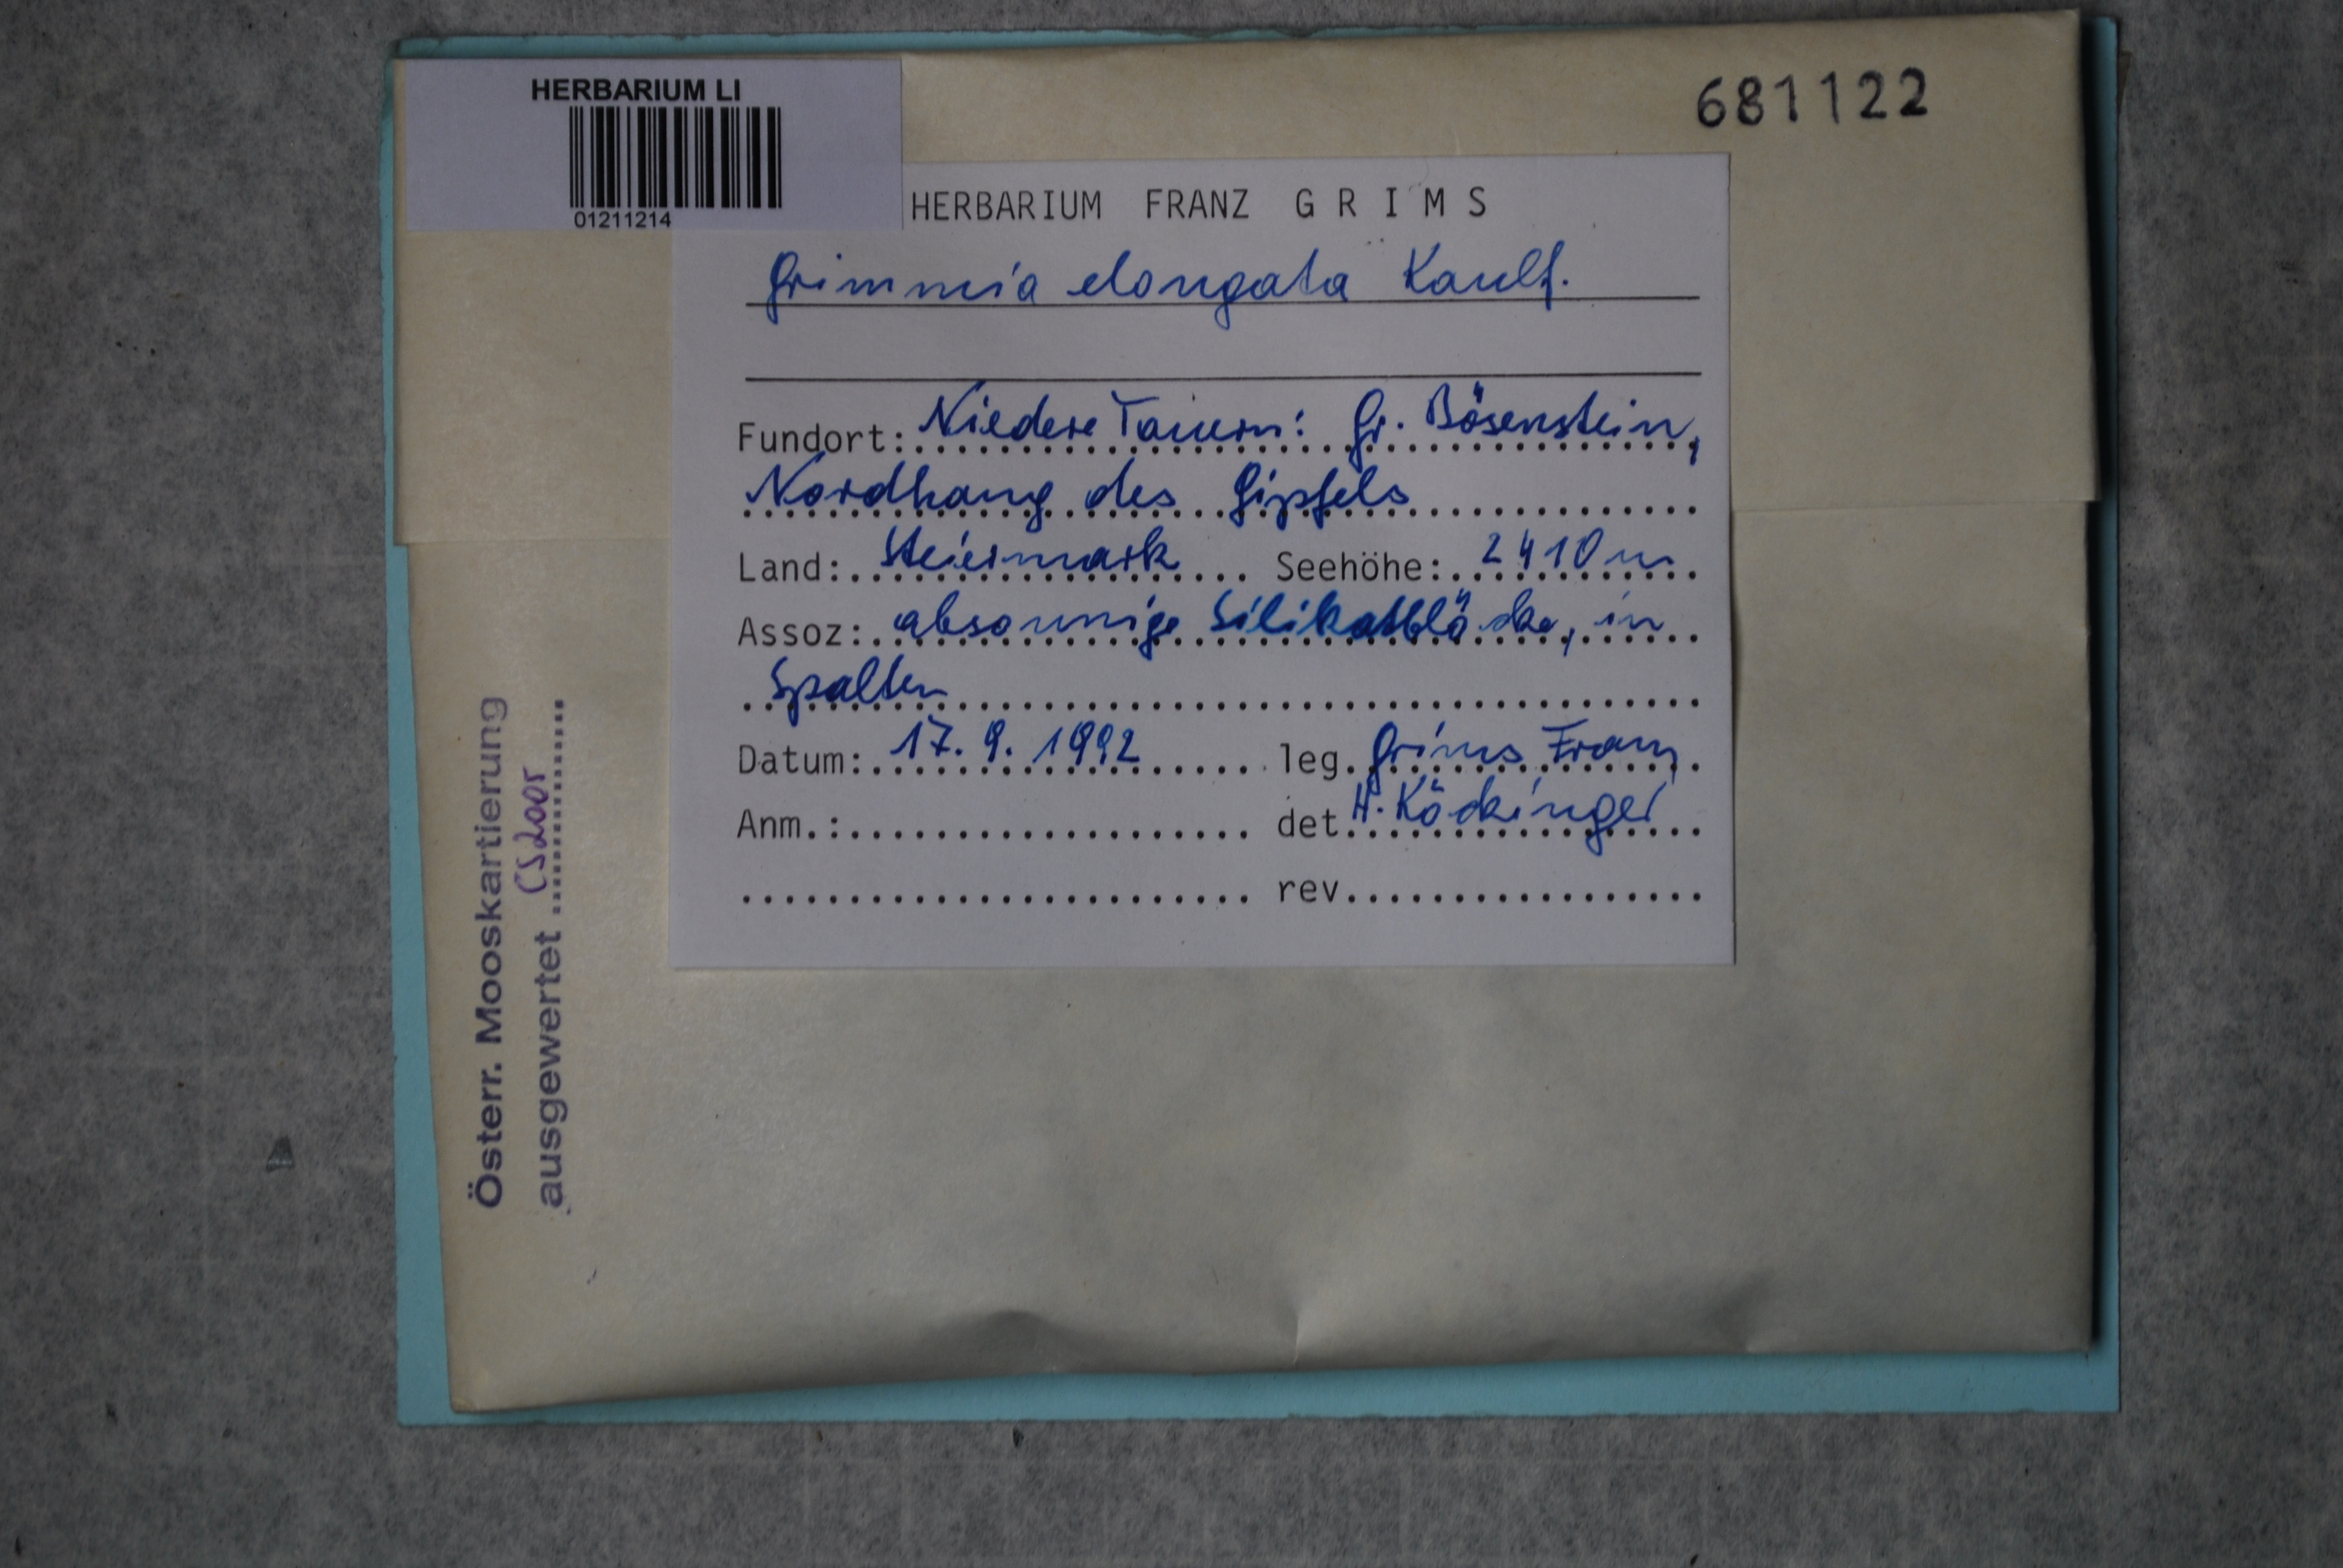 HERBARIUM LI
01211214
681122
HERBARIUM FRANZ G R I M S
Grimmia elongata Kaulf.
Fundort: Niedere Tauern: Gr. Bösenstein,
Nordhang des Gipfels
Land: Steiermark Seehöhe: 2410 m
Assoz: absonnige Silikatblöcke, in
Spalten
Datum: 17. 9. 1992 leg. Grims Franz
Anm.: det. H. Köckinger
rev.
Österr. Mooskartierung
ausgewertet CS2005